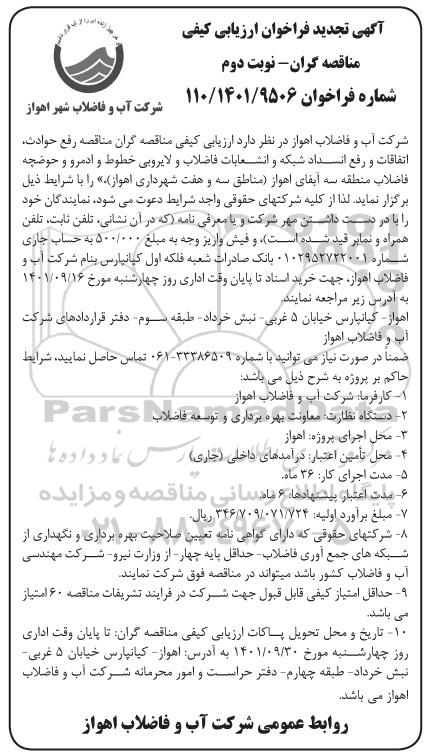 هر چیز زنده ای را از آب قرار دادیم
شرکت آب و فاضلاب شهر اهواز
آگهی تجدید فراخوان ارزیابی کیفی
مناقصه گران- نوبت دوم
شماره فراخوان ۱۱۰/۱۴۰۱/۹۵۰۶
شرکت آب و فاضلاب اهواز در نظر دارد ارزیابی کیفی مناقصه گران مناقصه رفع حوادث،
اتفاقات و رفع انسداد شبکه و انشعابات فاضلاب و لایروبی خطوط و ادمرو و حوضچه
فاضلاب منطقه سه آبفای اهواز (مناطق سه و هفت شهرداری اهواز)،» را با شرایط ذیل
برگزار نماید. لذا از کلیه شرکتهای حقوقی واجد شرایط دعوت می شود، نمایندگان خود
را با در دست داشتن مهر شرکت و یا معرفی نامه (که در آن نشانی، تلفن ثابت، تلفن
همراه و نمابر قید شده است)، و فیش واریز وجه به مبلغ ۵۰۰/۰۰۰ به حساب جاری
شماره ۰۱۰۲۹۵۲۷۲۲۰۰۱ بانک صادرات شعبه فلکه اول کیانپارس بنام شرکت آب و
فاضلاب اهواز، جهت خرید اسناد تا پایان وقت اداری روز چهارشنبه مورخ ۱۴۰۱/۰۹/۱۶
به آدرس زیر مراجعه نمایند.
اهواز- کیانپارس خیابان ۵ غربی- نبش خرداد- طبقه سوم- دفتر قراردادهای شرکت
آب و فاضلاب اهواز
ضمناً در صورت نیاز می توانید با شماره ۳۳۳۸۶۵۰۹-۰۶۱ تماس حاصل نمایید، شرایط
حاکم بر پروژه به شرح ذیل می باشد:
۱- کارفرما: شرکت آب و فاضلاب اهواز
۲- دستگاه نظارت: معاونت بهره برداری و توسعه فاضلاب
۳- محل اجرای پروژه: اهواز
۴- محل تأمین اعتبار: درآمدهای داخلی (جاری)
۵- مدت اجرای کار: ۳۶ ماه.
۶- مدت اعتبار پیشنهادها: ۶ ماه.
۷- مبلغ برآورد اولیه: ۳۴۶/۷۰۹/۰۷۱/۷۲۴ ریال.
۸- شرکتهای حقوقی که دارای گواهی نامه تعیین صلاحیت بهره برداری و نگهداری از
شبکه های جمع آوری فاضلاب- حداقل پایه چهار- از وزارت نیرو- شرکت مهندسی
آب و فاضلاب کشور باشد میتواند در مناقصه فوق شرکت نمایند.
۹- حداقل امتیاز کیفی قابل قبول جهت شرکت در فرایند تشریفات مناقصه ۶۰ امتیاز
می باشد.
۱۰- تاریخ و محل تحویل پاکات ارزیابی کیفی مناقصه گران: تا پایان وقت اداری
روز چهارشنبه مورخ ۱۴۰۱/۰۹/۳۰ به آدرس: اهواز- کیانپارس خیابان ۵ غربی-
نبش خرداد- طبقه چهارم- دفتر حراست و امور محرمانه شرکت آب و فاضلاب
اهواز می باشد.
روابط عمومی شرکت آب و فاضلاب اهواز